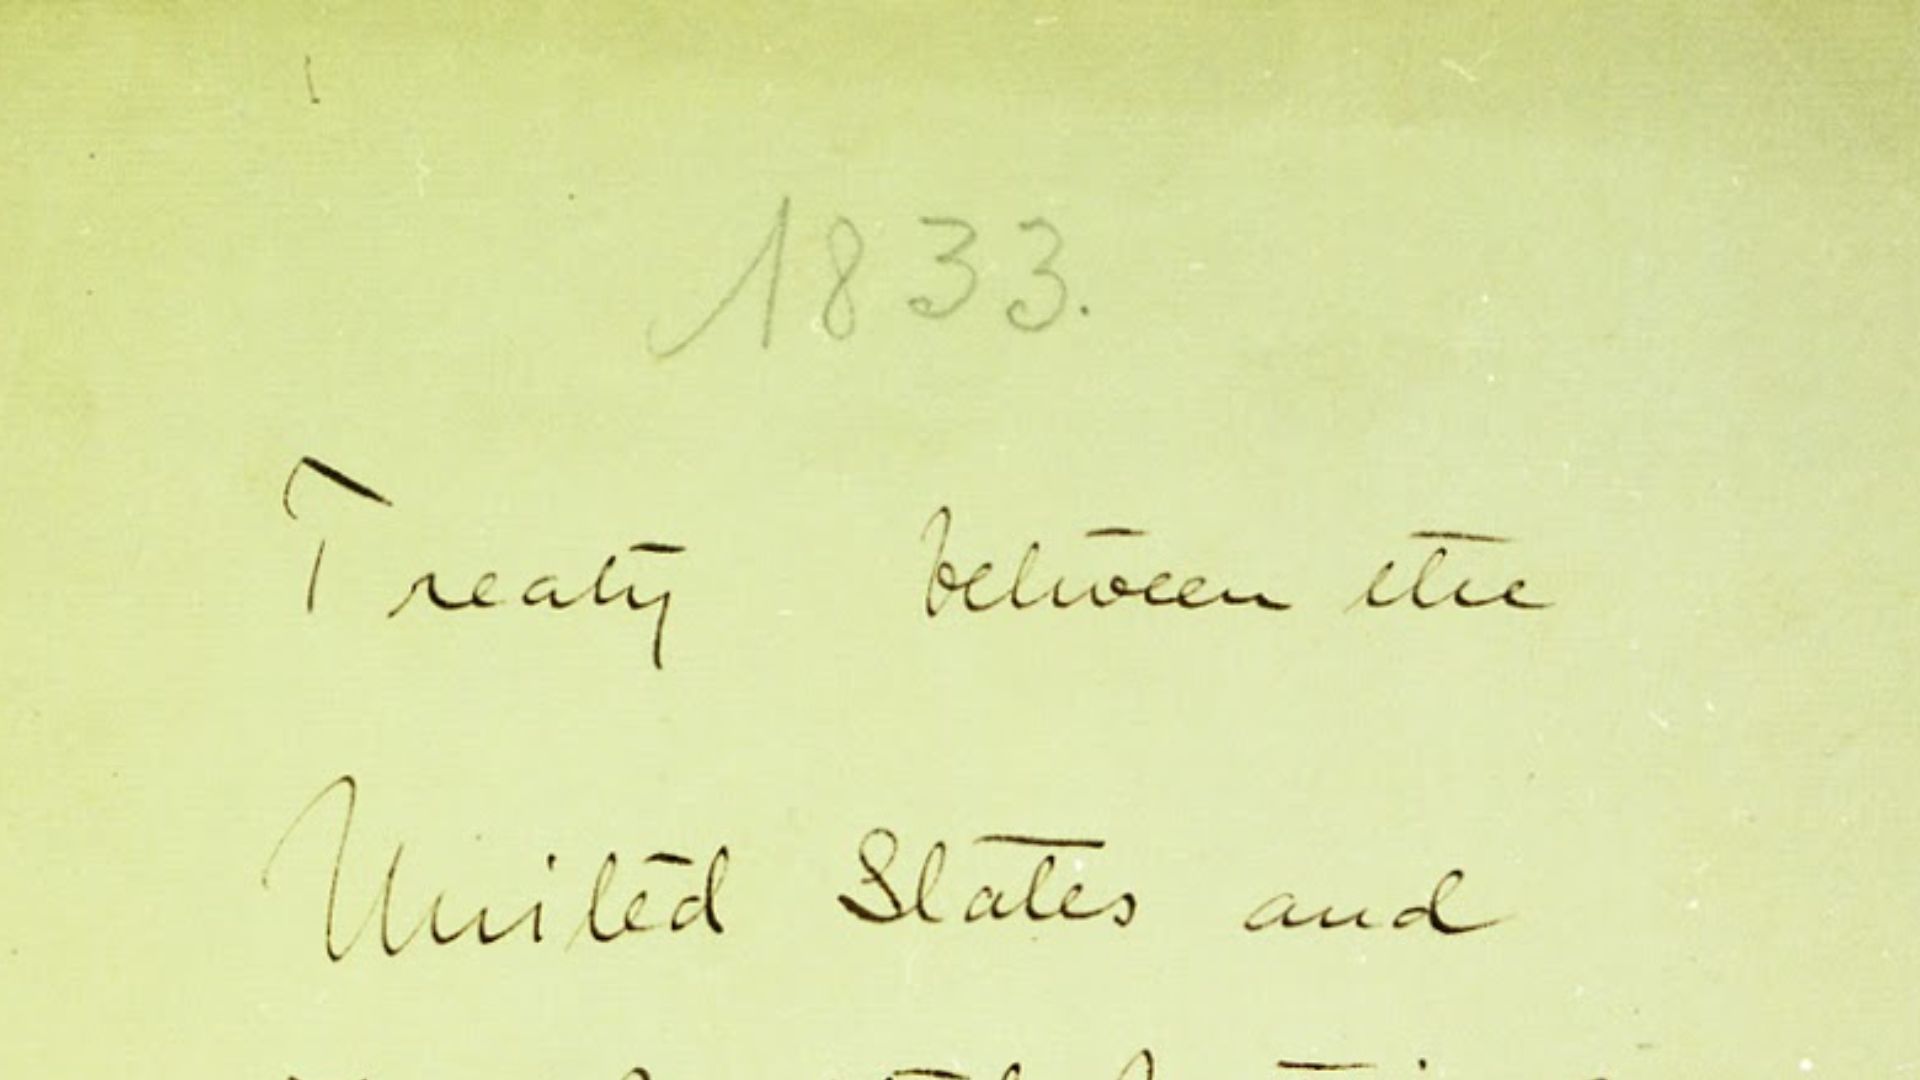 1833.
Treaty between the
United States and